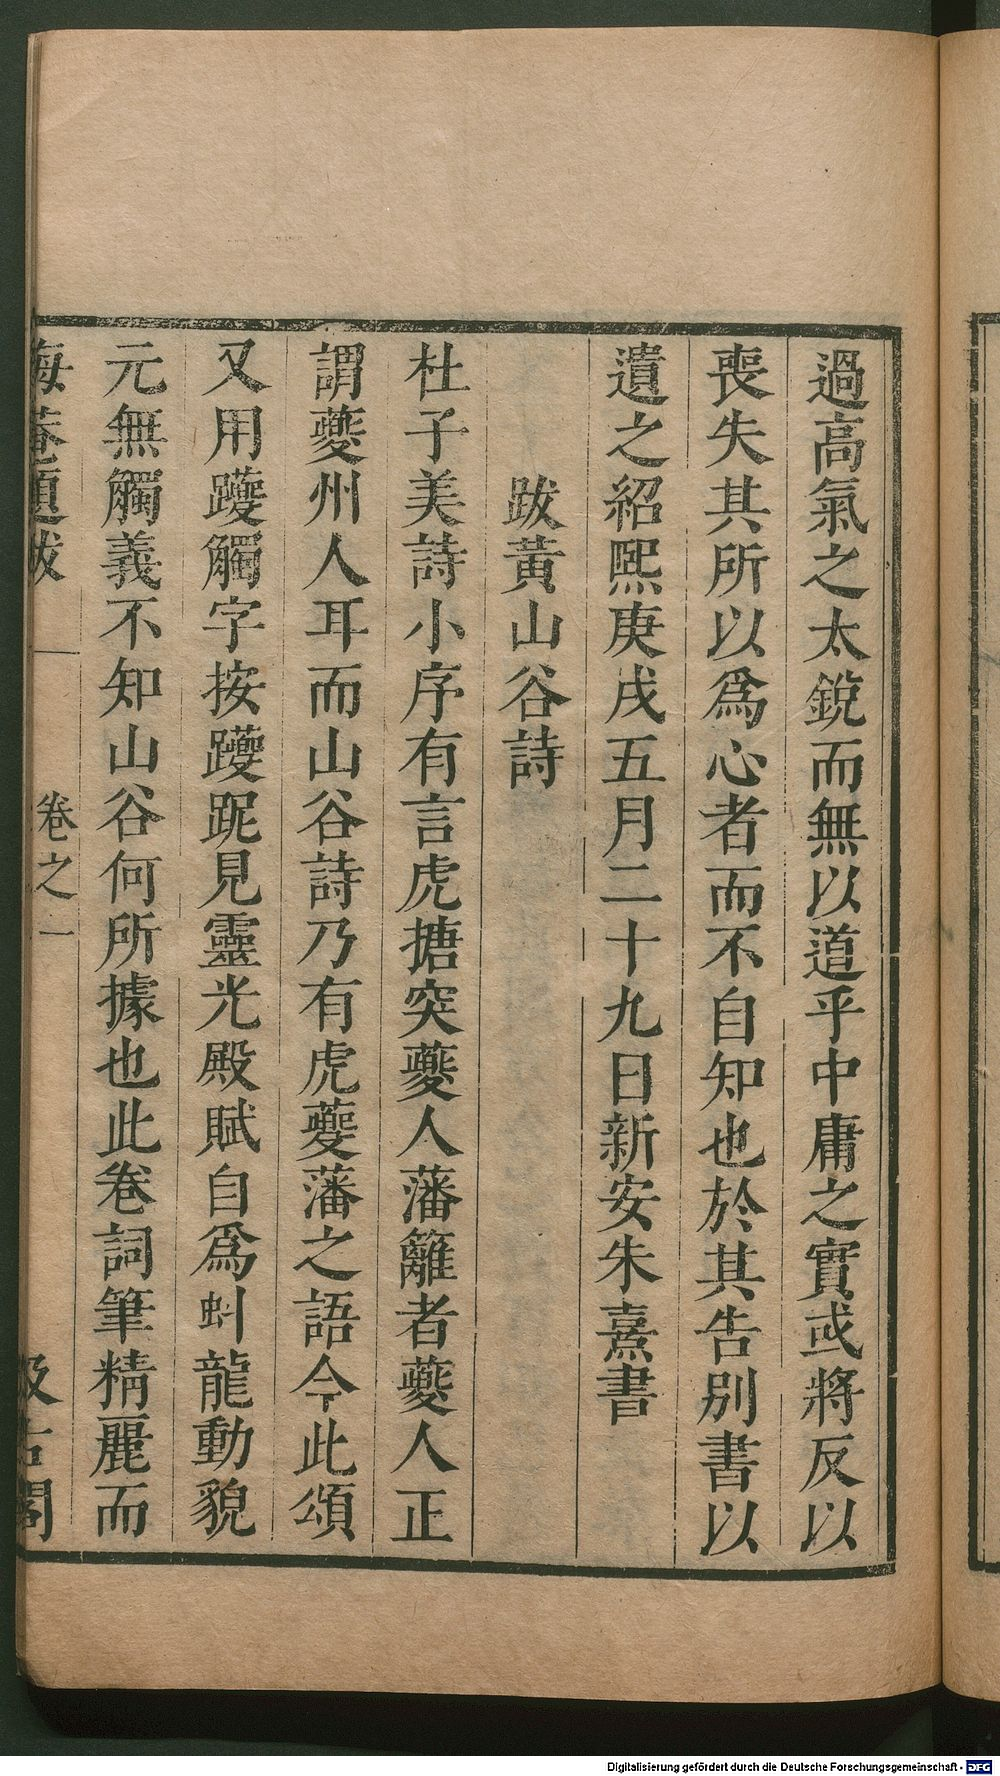 過高氣之太銳而無以道乎中庸之實或將反以
喪失其所以爲心者而不自知也於其告別書以
遺之紹熙庚戌五月二十九日新安朱熹書
跋黃山谷詩
杜子美詩小序有言虎搪突夔人藩籬者夔人正
謂夔州人耳而山谷詩乃有虎夔藩之語今此頌
又用躨觸字按躨跜見靈光殿賦自爲虯龍動貌
元無觸義不知山谷何所據也此卷詞筆精麗而
海菴題跋 卷之一 汲古閣
Digitalisierung gefördert durch die Deutsche Forschungsgemeinschaft - DFG